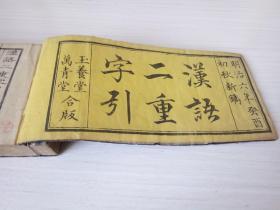 明治六年癸酉
初秋新鐫
漢語
二重
字引
玉養堂
萬青堂
合版